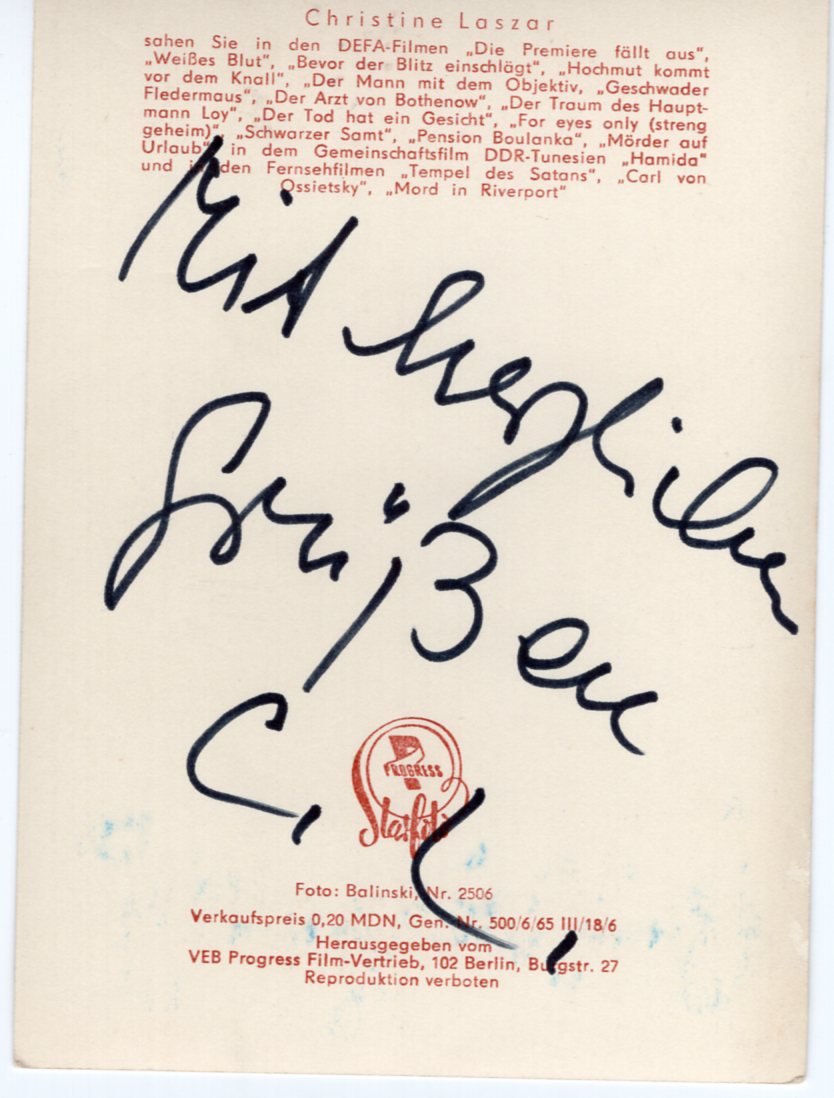 Christine Laszar
sahen Sie in den DEFA-Filmen „Die Premiere fällt aus",
„Weißes Blut", „Bevor der Blitz einschlägt", „Hochmut kommt
vor dem Knall", „Der Mann mit dem Objektiv, „Geschwader
Fledermaus", „Der Arzt von Bothenow", „Der Traum des Haupt-
mann Loy", „Der Tod hat ein Gesicht", „For eyes only (streng
geheim)", „Schwarzer Samt", „Pension Boulanka", „Mörder auf
Urlaub", in dem Gemeinschaftsfilm DDR-Tunesien „Hamida"
und in den Fernsehfilmen „Tempel des Satans", „Carl von
Ossietsky", „Mord in Riverport"
Mit herzlichen
Grüßen
C. L.
PROGRESS
Starfoto
Foto: Balinski, Nr. 2506
Verkaufspreis 0,20 MDN, Gen. Nr. 500/6/65 III/18/6
Herausgegeben vom
VEB Progress Film-Vertrieb, 102 Berlin, Burgstr. 27
Reproduktion verboten